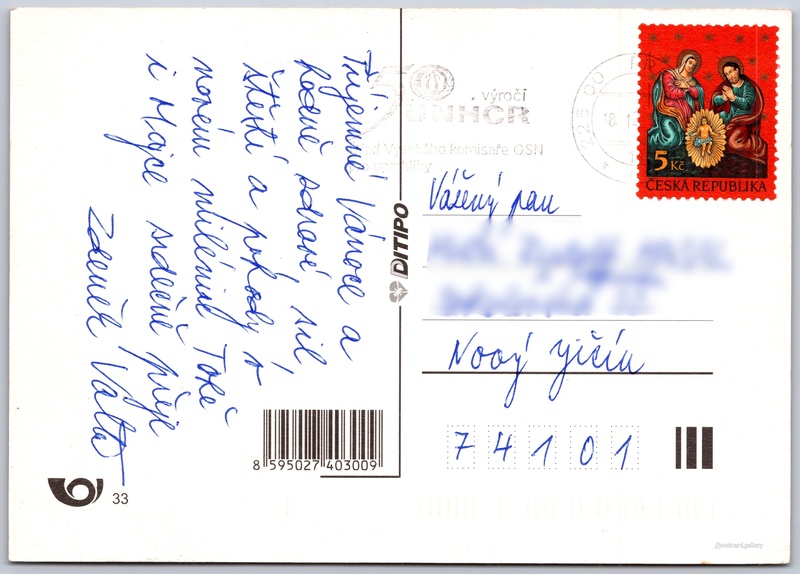 Příjemné Vánoce a
hodně zdraví, sil
štěstí a pohody v
novém miléniu Tobě
i Majce srdečně přeje
Zdeněk
výročí
UNHCR
Vysokého komisaře OSN
225 00
18.1
5 Kč
ČESKÁ REPUBLIKA
Vážený pan
Nový Jičín
74101
DITIPO
8 595027 403009
33